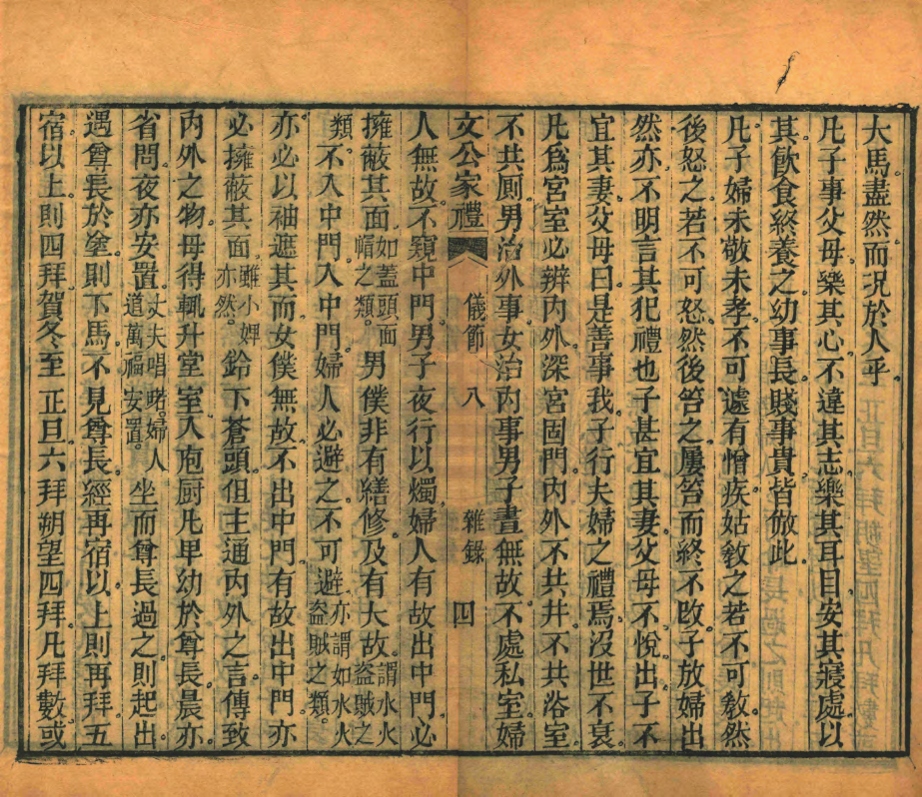 犬馬盡然而况於人乎
凡子事父母樂其心不違其志樂其耳目安其寢處以
其飲食終養之幼事長賤事貴皆倣此
凡子婦未敬未孝不可遽有憎疾姑敎之若不可敎然
後怒之若不可怒然後笞之屢笞而終不改子放婦出
然亦不明言其犯禮也子甚宜其妻父母不悅出子不
宜其妻父母曰是善事我子行夫婦之禮焉沒世不衰
凡爲宮室必辨內外深宮固門內外不共井不共浴室
不共厠男治外事女治內事男子晝無故不處私室婦
文公家禮 儀節 八 雜錄 四
人無故不窺中門男子夜行以燭婦人有故出中門必
擁蔽其面如蓋頭面帽之類男僕非有繕修及有大故謂水火盜賊之
類不入中門入中門婦人必避之不可避亦謂如水火盜賊之類
亦必以袖遮其面女僕無故不出中門有故出中門亦
必擁蔽其面雖小婢亦然鈴下蒼頭但主通內外之言傳致
內外之物毋得輒升堂室入庖厨凡卑幼於尊長晨亦
省問夜亦安置丈夫唱喏婦人道萬福安置坐而尊長過之則起出
遇尊長於塗則下馬不見尊長經再宿以上則再拜五
宿以上則四拜賀冬至正旦六拜朔望四拜凡拜數或